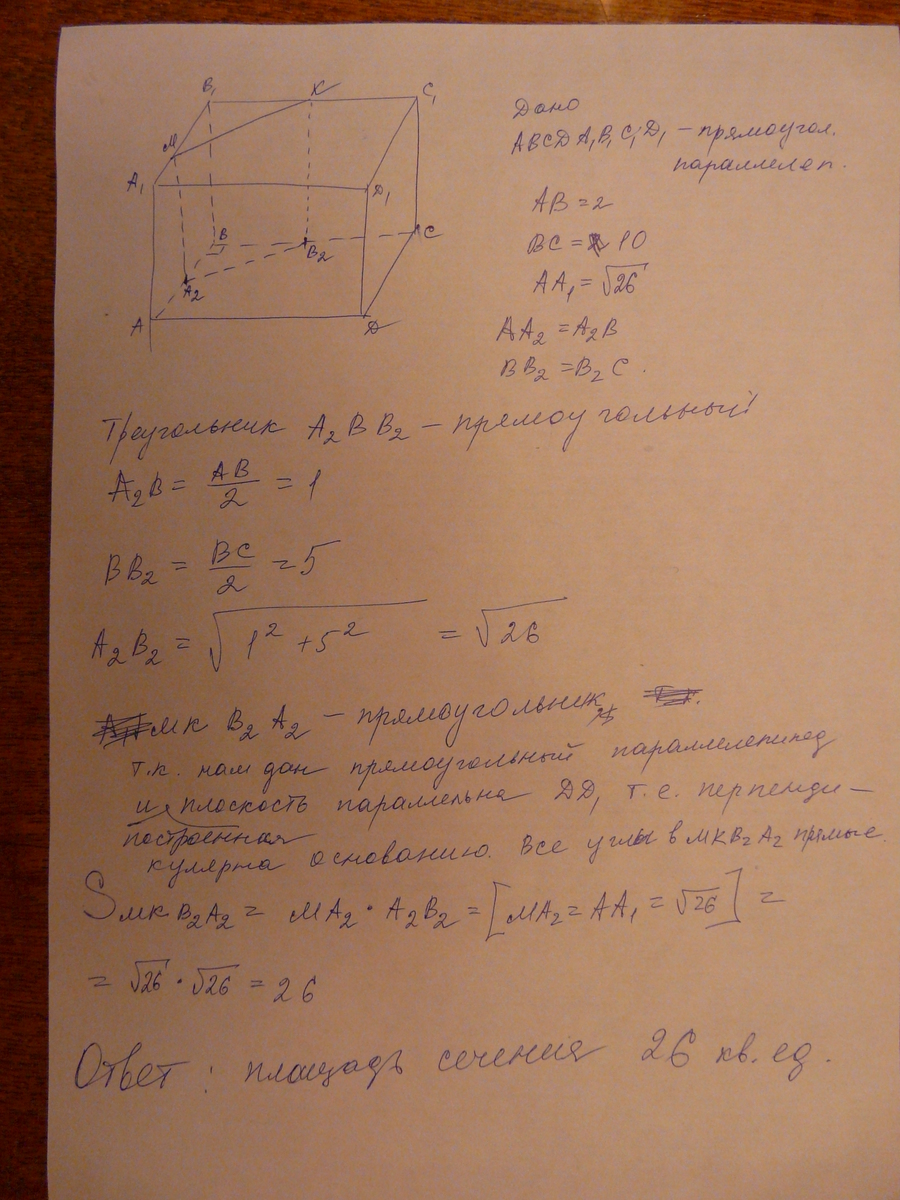 B₁ K C₁
M
A₁ D₁
B B₂ C
A₂
A D
Дано
ABCDA₁B₁C₁D₁ – прямоугол.
параллелеп.
AB = 2
BC = 10
AA₁ = √26
AA₂ = A₂B
BB₂ = B₂C.
Треугольник A₂BB₂ – прямоугольный
A₂B = AB/2 = 1
BB₂ = BC/2 = 5
A₂B₂ = √(1² + 5²) = √26
MK B₂A₂ – прямоугольник,
т.к. нам дан прямоугольный параллелепипед
и плоскость параллельна DD₁ т.е. перпенди–
построенная
кулярна основанию. Все углы в MKB₂A₂ прямые.
S MKB₂A₂ = MA₂ · A₂B₂ = [MA₂ = AA₁ = √26] =
= √26 · √26 = 26
Ответ: площадь сечения 26 кв. ед.